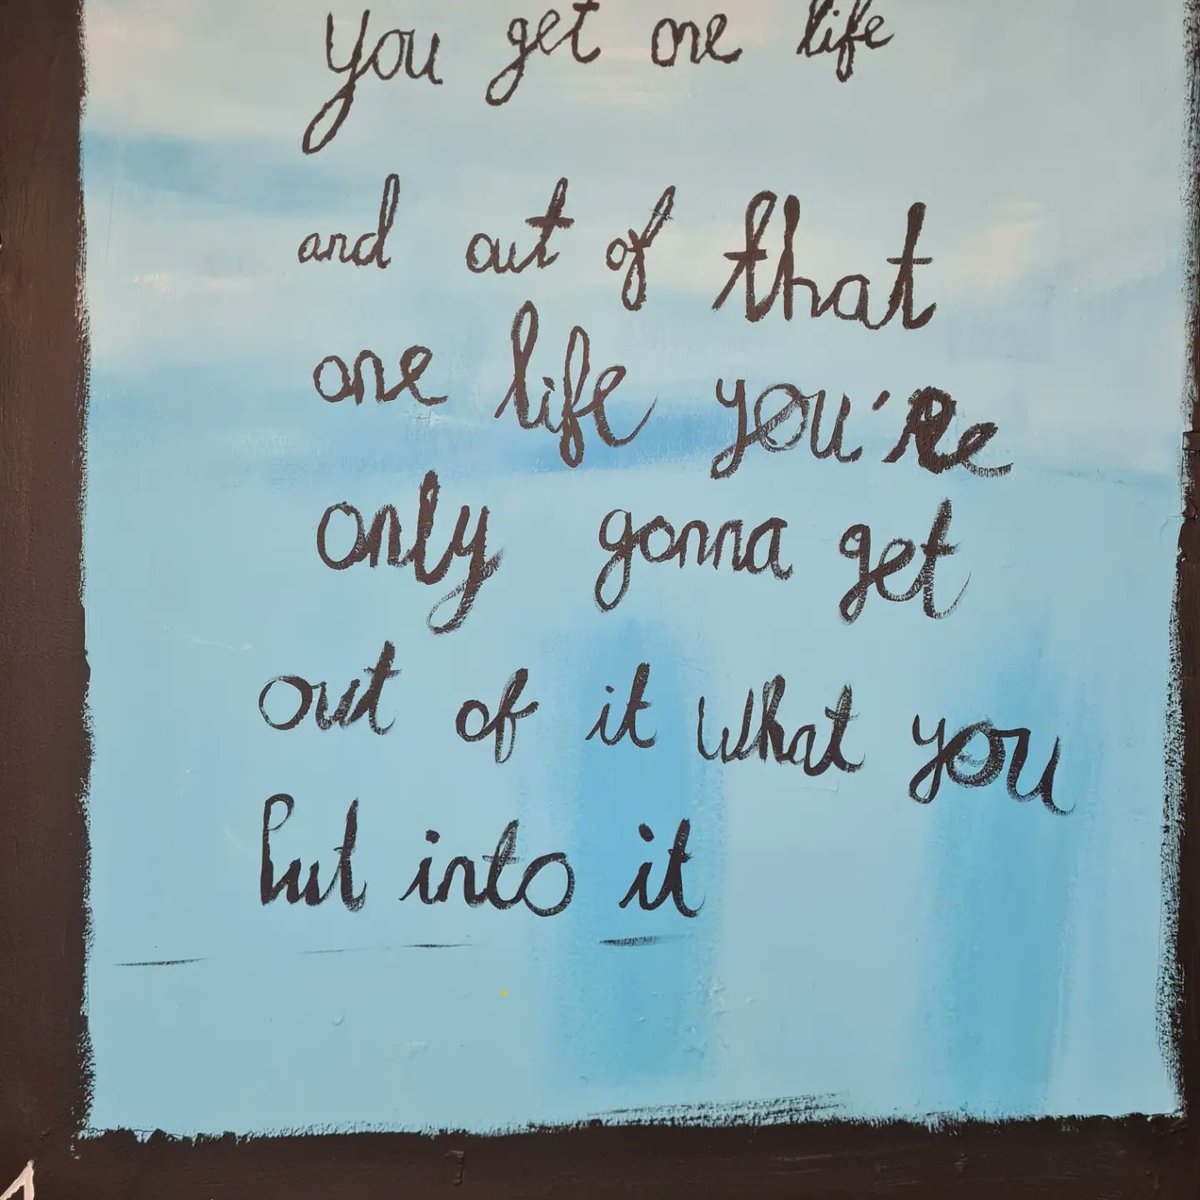 You get one life
and out of that
one life you're
only gonna get
out of it what you
put into it